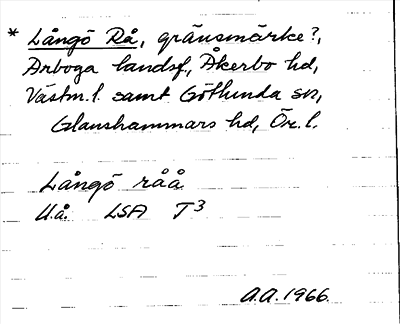 * Långö Rå, gränsmärke?,
Arboga landsf, Åkerbo hd,
Västm. l. samt Götlunda sn,
Glanshammars hd, Ör. l.
Långö råå
U.å. LSA T3
A.A. 1966